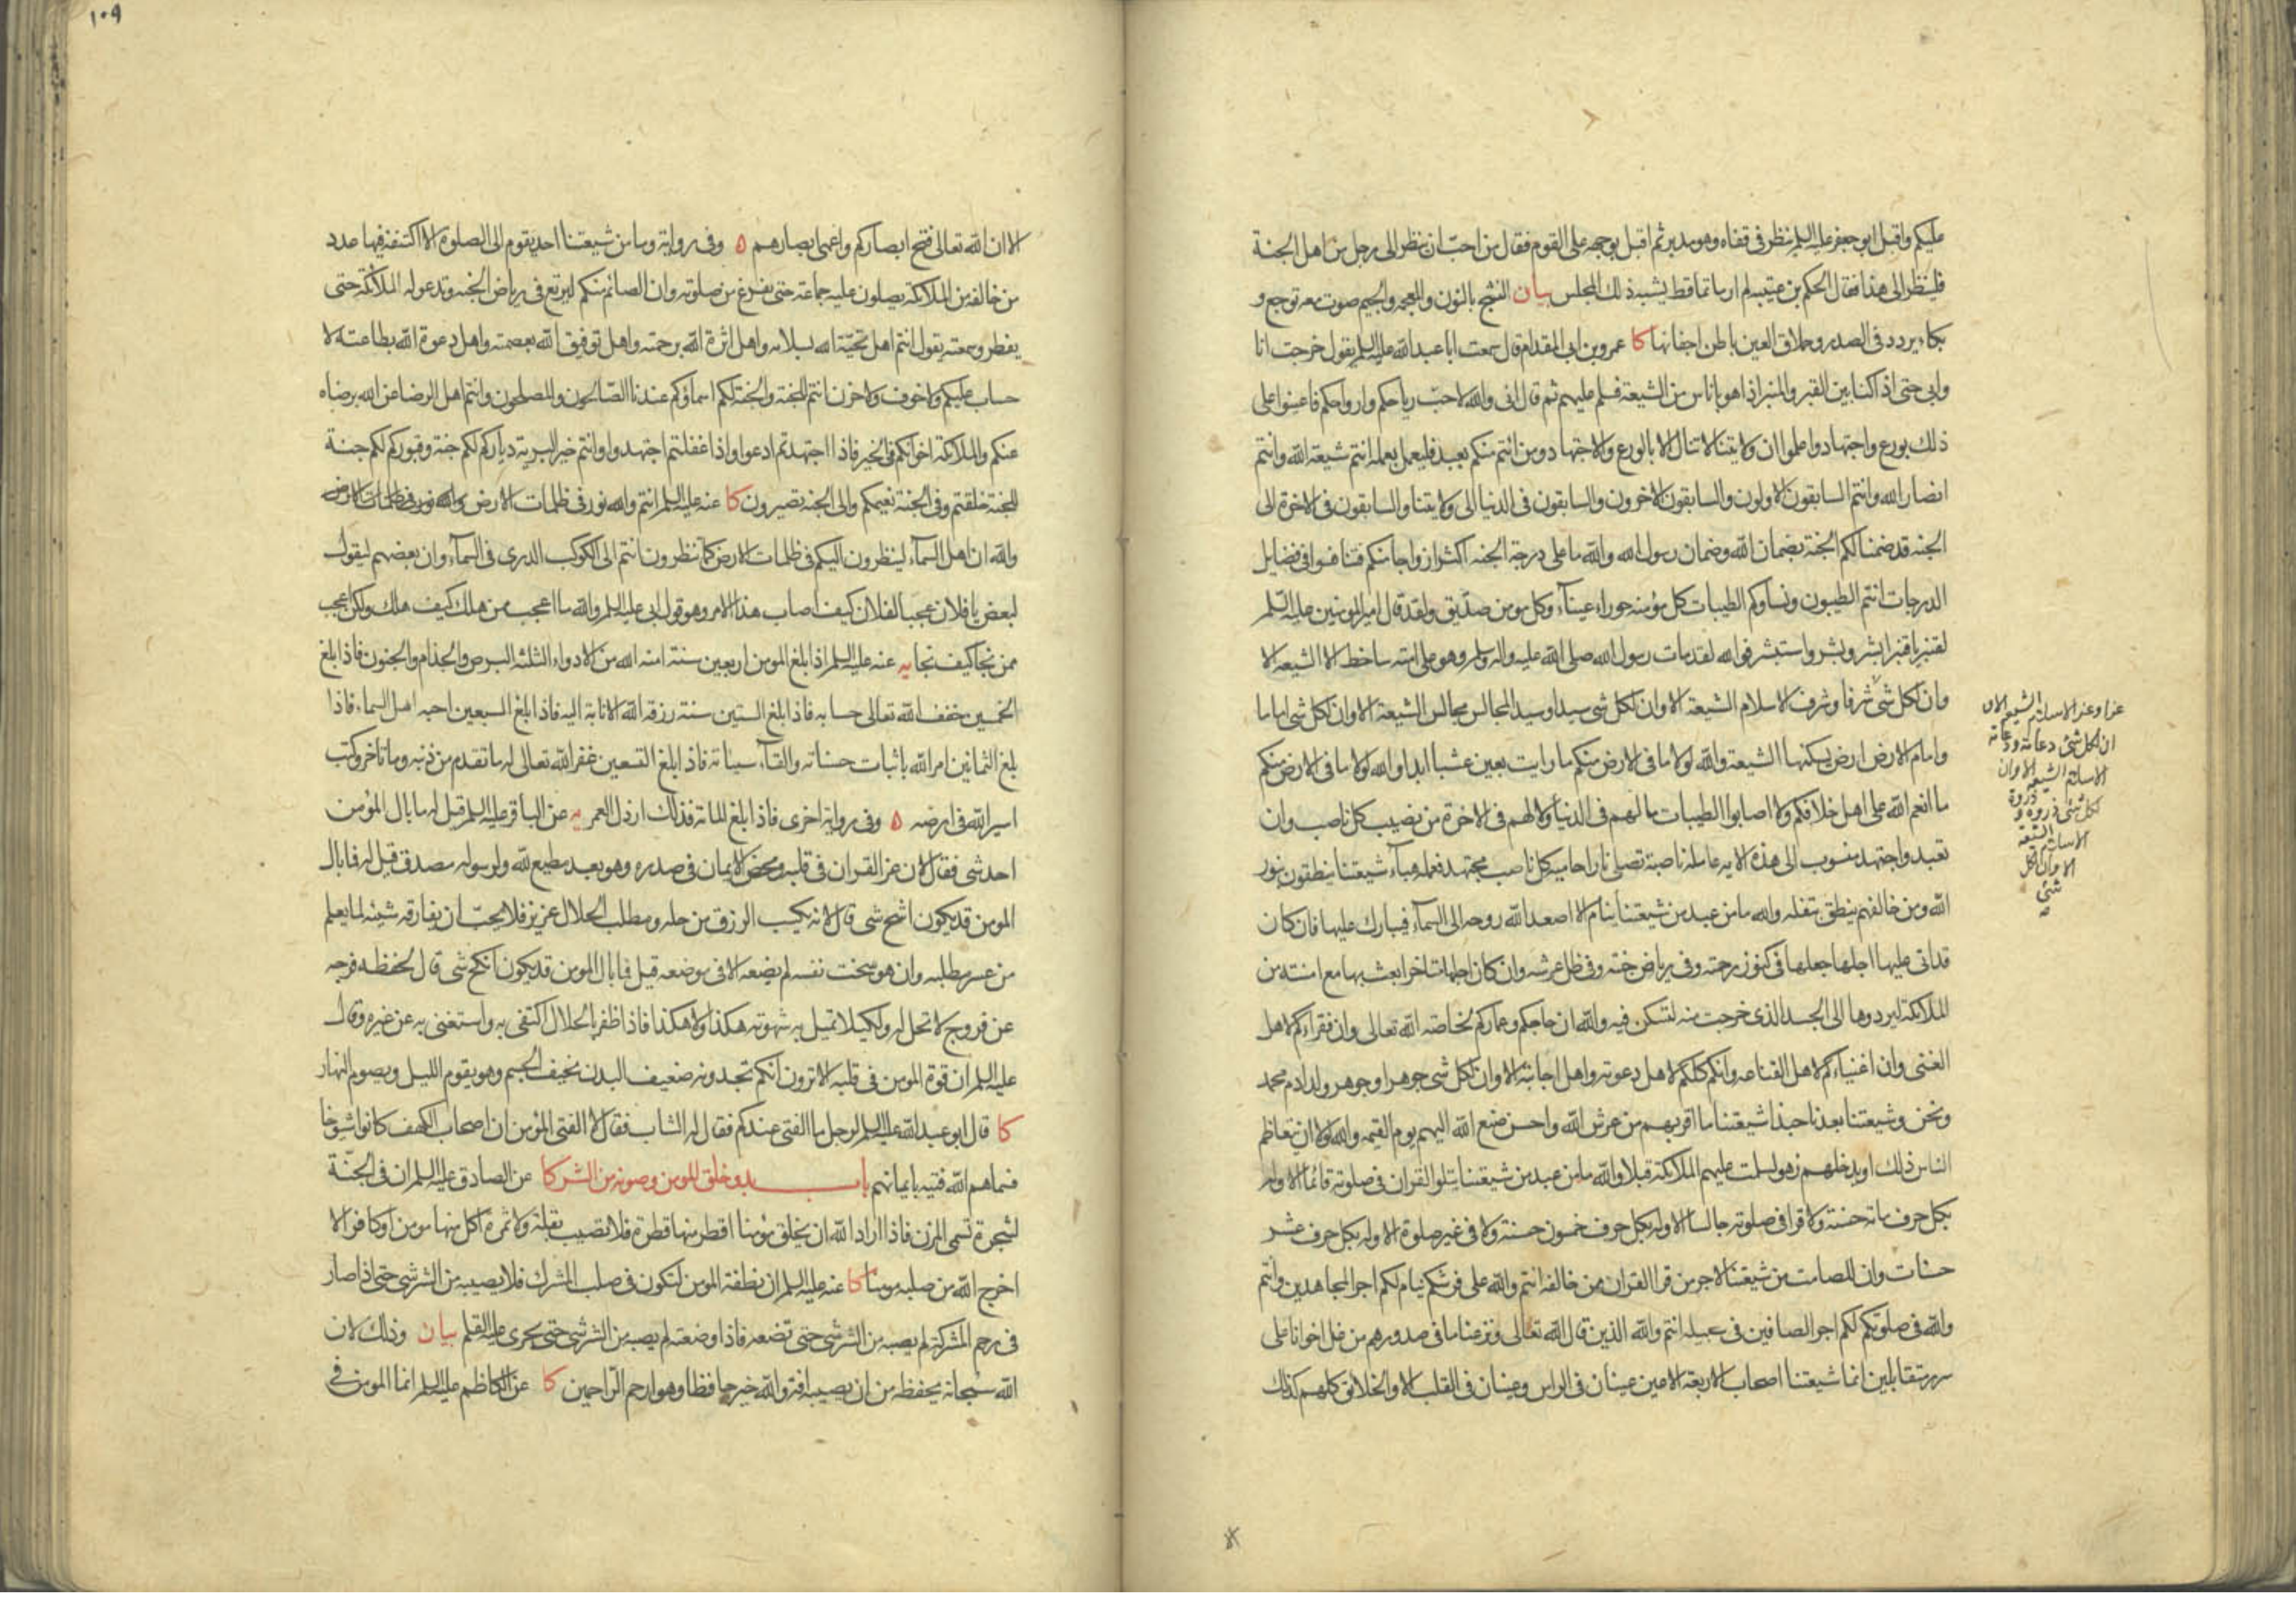 عليكم واقبل ابو جعفر عليه السلم ينظر فى قفاه وهو مدبر ثم اقبل بوجهه على القوم فقال من احبّ ان ينظر الى رجل من اهل الجنة
فلينظر الى هذا فقال الحكم بن عتيبه لم ار ماتما قط يشبه ذلك المجلس بيان النشج بالنون والمعجمه والجيم صوت معه توجع و
بكاء يردد فى الصدر وحملاق العين باطن اجفانها كا عمرو بن ابى المقدام قال سمعت ابا عبد الله عليه السلم يقول خرجت انا
وابى حتى اذا كنا بين القبر والمنبر اذا هو باناس من الشيعة فسلم عليهم ثم قال انى والله لاحبّ رياحكم وارواحكم فاعينوا على
ذلك بورع واجتهاد واعلموا ان ولايتنا لا تنال الا بالورع والاجتهاد ومن ائتم منكم بعبد فليعمل بعمله انتم شيعة الله وانتم
انصار الله وانتم السابقون الاولون والسابقون الاخرون والسابقون فى الدنيا الى ولايتنا والسابقون فى الاخرة الى
الجنه قد ضمنا لكم الجنة بضمان الله وضمان رسول الله والله ما على درجة الجنه اكثر ازواجا منكم فتنافسوا فى فضايل
الدرجات انتم الطيبون ونساؤكم الطيبات كل مؤمنه حوراء عيناء وكل مومن صدّيق ولقد قال امير المومنين عليه السّلم
لقنبر يا قنبر ابشر وبشر واستبشر فوالله لقد مات رسول الله صلى الله عليه واله وسلم وهو على امته ساخط الا الشيعه الا
وان لكل شئ شرفا وشرف الاسلام الشيعة الا وان لكل شى سيدا وسيد المجالس مجالس الشيعة الا وان لكل شى اماما
وامام الارض ارض يسكنها الشيعة والله لولا ما فى الارض منكم ما رايت بعين عشبا ابدا والله لولا ما فى الارض منكم
ما انعم الله على اهل خلافكم ولا اصابوا الطيبات ما لهم فى الدنيا ولا لهم فى الاخرة من نصيب كل ناصب وان
تعبد واجتهد منسوب الى هذه الايه عاملة ناصبة تصلى نارا حاميه كل ناصب مجتهد فعمله هباء شيعتنا ينطقون بنور
الله ومن خالفهم ينطق بتفله والله ما من عبد من شيعتنا ينام الا اصعد الله روحه الى السماء فيبارك عليها فان كان
قد اتى عليها اجلها جعلها فى كنوز رحمته وفى رياض جنته وفى ظل عرشه وان كان اجلها متاخرا بعث بها مع امنته من
الملائكة ليردوها الى الجسد الذى خرجت منه لتسكن فيه والله ان حاجكم وعماركم لخاصة الله تعالى وان فقراءكم لاهل
الغنى وان اغنياءكم لاهل القناعه وانكم كلكم لاهل دعوته واهل اجابته الا وان لكل شى جوهرا وجوهر ولد ادم محمد
ونحن وشيعتنا بعدنا حبذا شيعتنا ما اقربهم من عرش الله واحسن صنع الله اليهم يوم القيمه والله لولا ان يتعاظم
الناس ذلك او يدخلهم زهو لسلمت عليهم الملائكة قبلا والله ما من عبد من شيعتنا يتلو القران فى صلوته قائما الا وله
بكل حرف مائه حسنة ولا قرا فى صلوته جالسا الا وله بكل حرف خمسون حسنة ولا فى غير صلوة الا وله بكل حرف عشر
حسنات وان للصامت من شيعتنا لاجر من قرا القران ممن خالفه انتم والله على فرشكم نيام لكم اجر المجاهدين وانتم
والله فى صلوتكم لكم اجر الصافين فى سبيله انتم والله الذين قال الله تعالى ونزعنا ما فى صدورهم من غل اخوانا على
سرر متقابلين انما شيعتنا اصحاب الاربعة الاعين عينان فى الراس وعينان فى القلب الا والخلائق كلهم كذلك
عزا وعز الاسلام الشيعه الا و
ان لكل شئ دعامة ودعامة
الاسلام الشيعه الا وان
لكل شئ ذروة وذروة
الاسلام الشيعة
الا وان لكل
شئ
١٠٩
الا ان الله تعالى فتح ابصاركم واعمى ابصارهم ٥ وفى رواية وما من شيعتنا احد يقوم الى الصلوة الا اكتنفه فيها عدد
من خالفه من الملائكة يصلون عليه جماعة حتى يفرغ من صلوته وان الصائم منكم ليرتع فى رياض الجنه وتدعو له الملائكة حتى
يفطر وسمعته يقول انتم اهل تحيّة الله بسلامه واهل اثرة الله برحمته واهل توفيق الله بعصمته واهل دعوة الله بطاعته لا
حساب عليكم ولا خوف ولا حزن انتم للجنة والجنة لكم اسماؤكم عندنا الصّالحون والمصلحون وانتم اهل الرضا عن الله برضاه
عنكم والملائكة اخوانكم فى الخير فاذا اجتهدتم ادعوا واذا غفلتم اجتهدوا وانتم خير البرية دياركم لكم جنة وقبوركم لكم جنة
للجنة خلقتم وفى الجنة نعيمكم والى الجنه تصيرون كا عنه عليه السلم انتم والله نور فى ظلمات الارض والله نور فى ظلمات الارض
والله ان اهل السماء لينظرون اليكم فى ظلمات الارض كما تنظرون انتم الى الكوكب الدرى فى السماء وان بعضهم ليقول
لبعض يا فلان عجبا لفلان كيف اصاب هذا الامر وهو قول ابى عليه السلم والله ما اعجب ممن هلك كيف هلك ولكن اعجب
ممن نجا كيف نجا يه عنه عليه السلم اذا بلغ المومن اربعين سنة امنه الله من الادواء الثلثه البرص والجذام والجنون فاذا بلغ
الخمسين خفف الله تعالى حسابه فاذا بلغ الستين سنة رزقه الله الانابة اليه فاذا بلغ السبعين احبه اهل السماء فاذا
بلغ الثمانين امر الله باثبات حسناته والقاء سيئاته فاذا بلغ التسعين غفر الله تعالى له ما تقدم من ذنبه وما تاخر وكتب
اسير الله فى ارضه ٥ وفى رواية اخرى فاذا بلغ المائة فذلك ارذل العمر يه عن الباقر عليه السلم قيل له ما بال المؤمن
احد شى فقال لان عز القران فى قلبه ومحض الايمان فى صدره وهو بعد مطيع لله ولرسوله مصدق قيل له فما بال
المومن قد يكون اشح شى قال لانه يكسب الرزق من حله ومطلب الحلال عزيز فلا يحبّ ان يفارقه شيئه لما يعلم
من عسر مطلبه وان هو سخت نفسه لم يضعه الا فى موضعه قيل فما بال المومن قد يكون انكح شى قال لحفظه فرجه
عن فروج لا تحل له ولكيلا تميل به شهوته هكذا ولا هكذا فاذا ظفر بالحلال اكتفى به واستغنى به عن غيره وقال
عليه السلم ان قوة المومن فى قلبه الا ترون انكم تجدونه ضعيف البدن نحيف الجسم وهو يقوم الليل ويصوم النهار
كا قال ابو عبد الله عليه السلم لرجل ما الفتى عندكم فقال له الشاب فقال لا الفتى المؤمن ان اصحاب الكهف كانوا شيوخا
فسماهم الله فتية بايمانهم باب بدو خلق المومن وصونه من الشر كا عن الصادق عليه السلم ان فى الجنّة
لشجرة تسمى المزن فاذا اراد الله ان يخلق مؤمنا اقطر منها قطرة فلا تصيب بقلة ولا ثمرة اكل منها مومن او كافر الا
اخرج الله من صلبه مومنا كا عنه عليه السلم ان نطفة المومن لتكون فى صلب المشرك فلا يصيبه من الشر شى حتى اذا صار
فى رحم المشركة لم يصبه من الشر شى حتى تضعه فاذا وضعته لم يصبه من الشر شى حتى يجرى عليه القلم بيان وذلك لان
الله سبحانه يحفظه من ان يصيبه افة والله خير حافظا وهو ارحم الرّاحمين كا عن الكاظم عليه السلم انما المومن فى